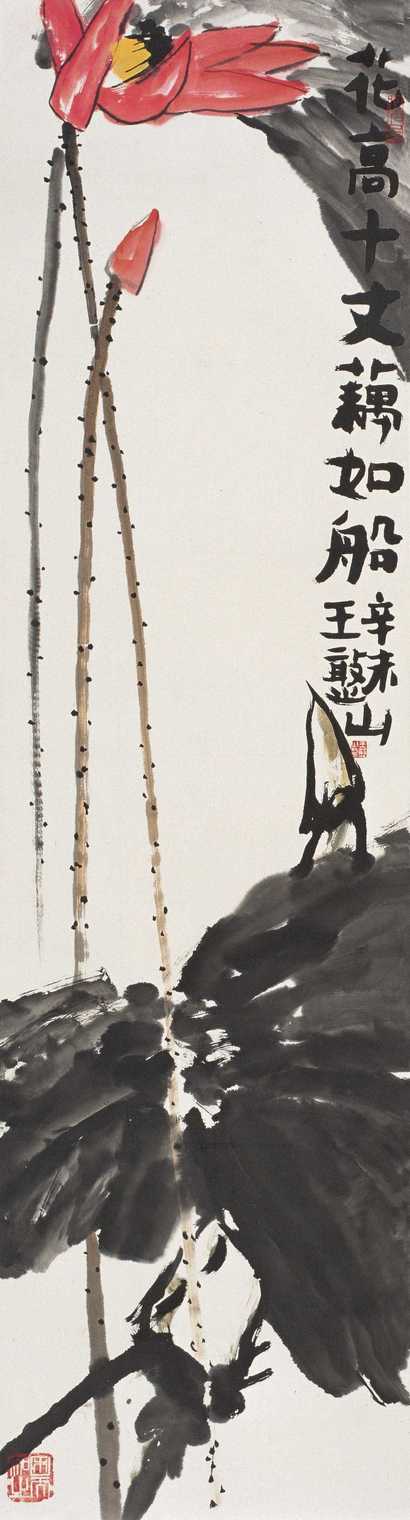 花高十丈藕如船
辛未
王憨山